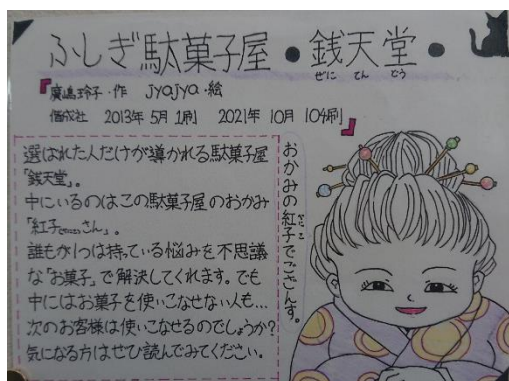 ふしぎ駄菓子屋・銭天堂・
ぜに てん どう
『廣嶋玲子・作 jyajya・絵
偕成社 2013年5月1刷 2021年10月10刷』
選ばれた人だけが導かれる駄菓子屋
「銭天堂」。
中にいるのはこの駄菓子屋のおかみ
「紅子さん」。
誰もが1つは持っている悩みを不思議
な「お菓子」で解決してくれます。でも
中にはお菓子を使いこなせない人も…
次のお客様は使いこなせるのでしょうか?
気になる方はぜひ読んでみてください。
おかみの紅子でござんす。
べにこ